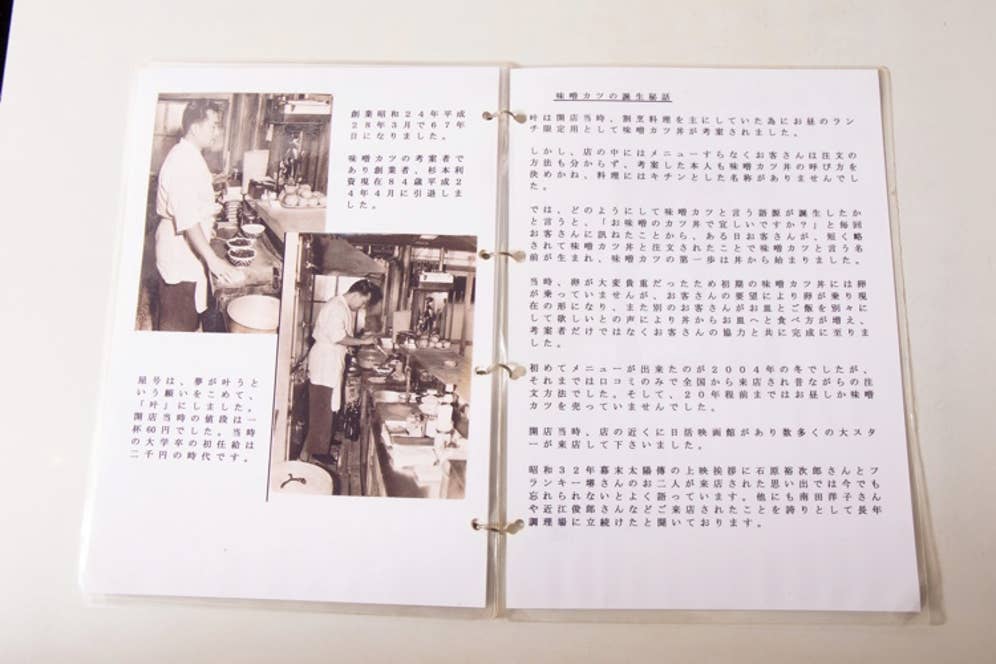 創業昭和24年平成
28年3月で67年
目になりました。
味噌カツの考案者で
あり創業者、杉本利
資現在84歳平成2
4年4月に引退しま
した。
屋号は、夢が叶うと
いう願いをこめて、
「叶」にしました。
開店当時の値段は一
杯60円でした。当時
の大学卒の初任給は
二千円の時代です。
味噌カツの誕生秘話
叶は開店当時、割烹料理を主にしていた為にお昼のラン
チ限定用として味噌カツ丼が考案されました。
しかし、店の中にはメニューすらなくお客さんは注文の
方法も分からず、考案した本人も味噌カツ丼の呼び方を
決めかね、料理にはキチンとした名称がありませんでし
た。
では、どのようにして味噌カツと言う語源が誕生したか
と言うと、「お味噌のカツ丼で宜しいですか?」と毎回
お客さんに訊ねたことから、ある日お客さんが、短く略
されて味噌カツ丼と注文されたことで味噌カツと言う名
前が生まれ、味噌カツの第一歩は丼から始まりました。
当時、卵が大変貴重だったため初期の味噌カツ丼には卵
が乗っていませんが、お客さんの要望により卵が乗り現
在の形になり、また別のお客さんがお皿とご飯を別々に
して欲しいとの声により丼からお皿へと食べ方が増え、
考案者だけではなくお客さんの協力と共に完成に至りま
した。
初めてメニューが出来たのが2004年の冬でしたが、
それまでは口コミのみで全国から来店され昔ながらの注
文方法でした。そして、20年程前まではお昼しか味噌
カツを売っていませんでした。
開店当時、店の近くに日活映画館があり数多くの大スタ
ーが来店して下さいました。
昭和32年幕末太陽傳の上映挨拶に石原裕次郎さんとフ
ランキー堺さんのお二人が来店された思い出では今でも
忘れられないとよく語っています。他にも南田洋子さん
や近江俊郎さんなどご来店されたことを誇りとして長年
調理場に立続けたと聞いております。